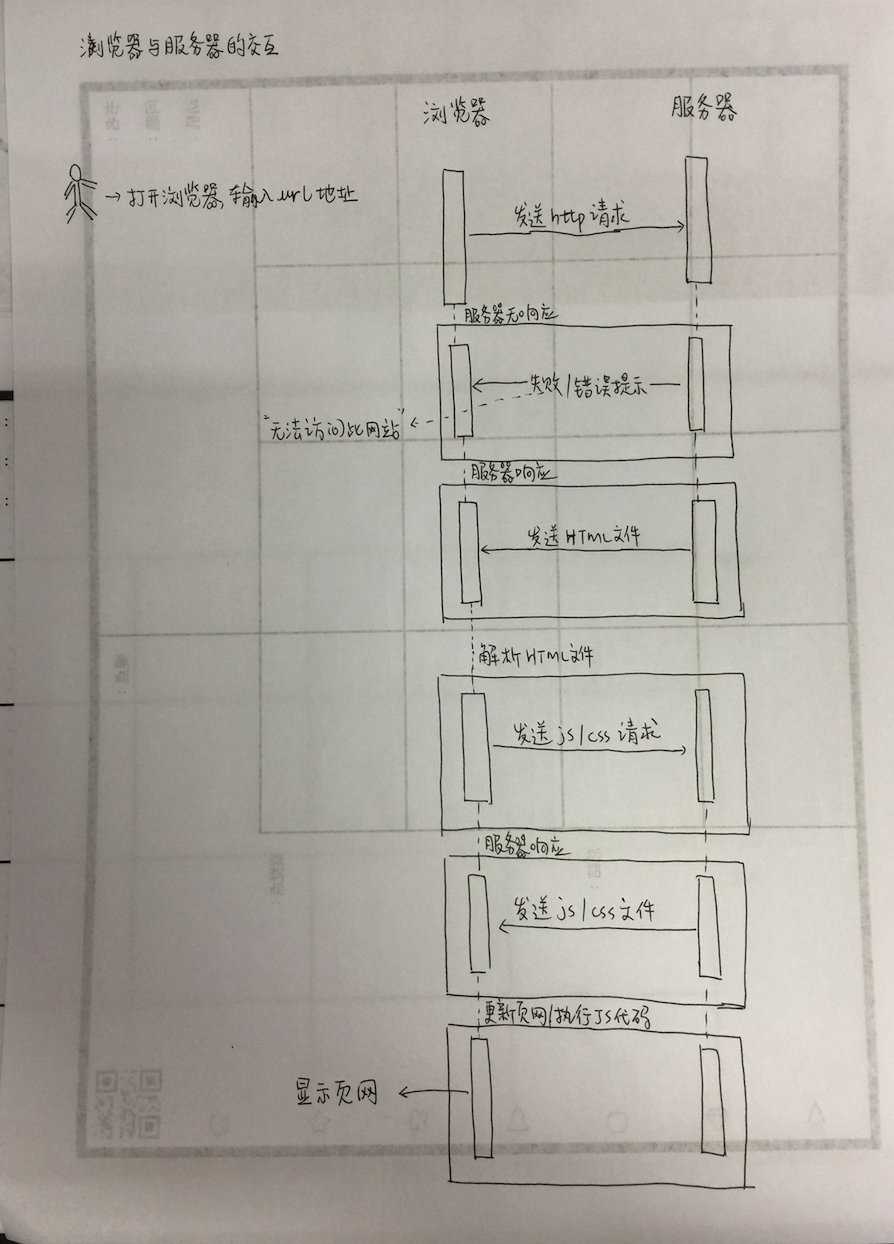 浏览器与服务器的交互
浏览器
服务器
→打开浏览器,输入url地址
发送http请求
服务器无响应
失败/错误提示
"无法访问此网站"
服务器响应
发送HTML文件
解析HTML文件
发送js/css请求
服务器响应
发送js/css文件
更新页网/执行JS代码
显示页网